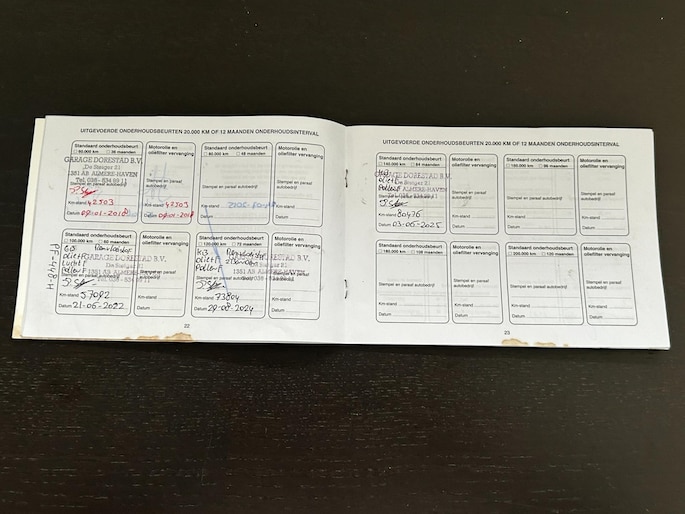 UITGEVOERDE ONDERHOUDSBEURTEN 20.000 KM OF 12 MAANDEN ONDERHOUDSINTERVAL
Standaard onderhoudsbeurt
60.000 km 36 maanden
GARAGE DORESTAD B.V.
De Steiger 21
1351 AB ALMERE-HAVEN
Stempel en paraaf autobedrijf
Km-stand 42503
Datum 09-01-2018
Motorolie en
oliefilter vervanging
Stempel en paraaf autobedrijf
Km-stand 42503
Datum 09-01-2018
Standaard onderhoudsbeurt
80.000 km 48 maanden
Stempel en paraaf autobedrijf
Km-stand
Datum
Motorolie en
oliefilter vervanging
Km-stand
Datum
Standaard onderhoudsbeurt
100.000 km 60 maanden
GB Remvloeistof
olie+F
Lucht F
Pollen F
GARAGE DORESTAD B.V.
De Steiger 21
1351 AB ALMERE-HAVEN
Km-stand 57092
Datum 21-06-2022
Motorolie en
oliefilter vervanging
Km-stand
Datum
Standaard onderhoudsbeurt
120.000 km 72 maanden
KB Remvloeistof
olie+F
Pollen F
GARAGE DORESTAD B.V.
De Steiger 21
1351 AB ALMERE-HAVEN
Km-stand 73804
Datum 29-08-2024
Motorolie en
oliefilter vervanging
Km-stand
Datum
22
UITGEVOERDE ONDERHOUDSBEURTEN 20.000 KM OF 12 MAANDEN ONDERHOUDSINTERVAL
Standaard onderhoudsbeurt
140.000 km 84 maanden
KB
olie+F
Pollen F
GARAGE DORESTAD B.V.
De Steiger 21
1351 AB ALMERE-HAVEN
Km-stand 80476
Datum 03-06-2025
Motorolie en
oliefilter vervanging
Km-stand
Datum
Standaard onderhoudsbeurt
160.000 km 96 maanden
Stempel en paraaf autobedrijf
Km-stand
Datum
Motorolie en
oliefilter vervanging
Km-stand
Datum
Standaard onderhoudsbeurt
180.000 km 108 maanden
Stempel en paraaf autobedrijf
Km-stand
Datum
Motorolie en
oliefilter vervanging
Km-stand
Datum
Standaard onderhoudsbeurt
200.000 km 120 maanden
Stempel en paraaf autobedrijf
Km-stand
Datum
Motorolie en
oliefilter vervanging
Km-stand
Datum
23